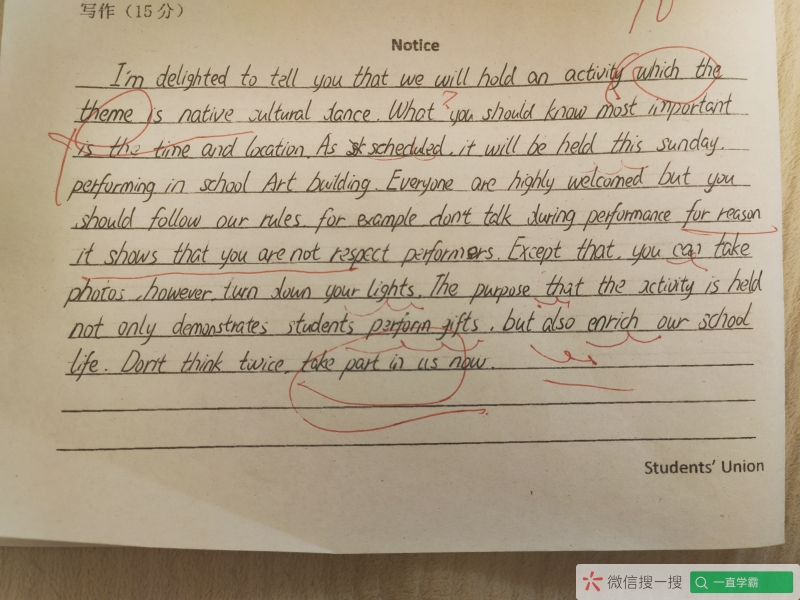 写作（15分）
10
Notice
I'm delighted to tell you that we will hold an activity which the
theme is native cultural dance. What you should know most important
is the time and location. As scheduled, it will be held this sunday,
performing in school Art building. Everyone are highly welcomed but you
should follow our rules, for example don't talk during performance for reason
it shows that you are not respect performers. Except that, you can take
photos, however, turn down your lights. The purpose that the activity is held
not only demonstrates students perform gifts, but also enrich our school
life. Don't think twice, take part in us now.
Students' Union
微信搜一搜
一直学霸